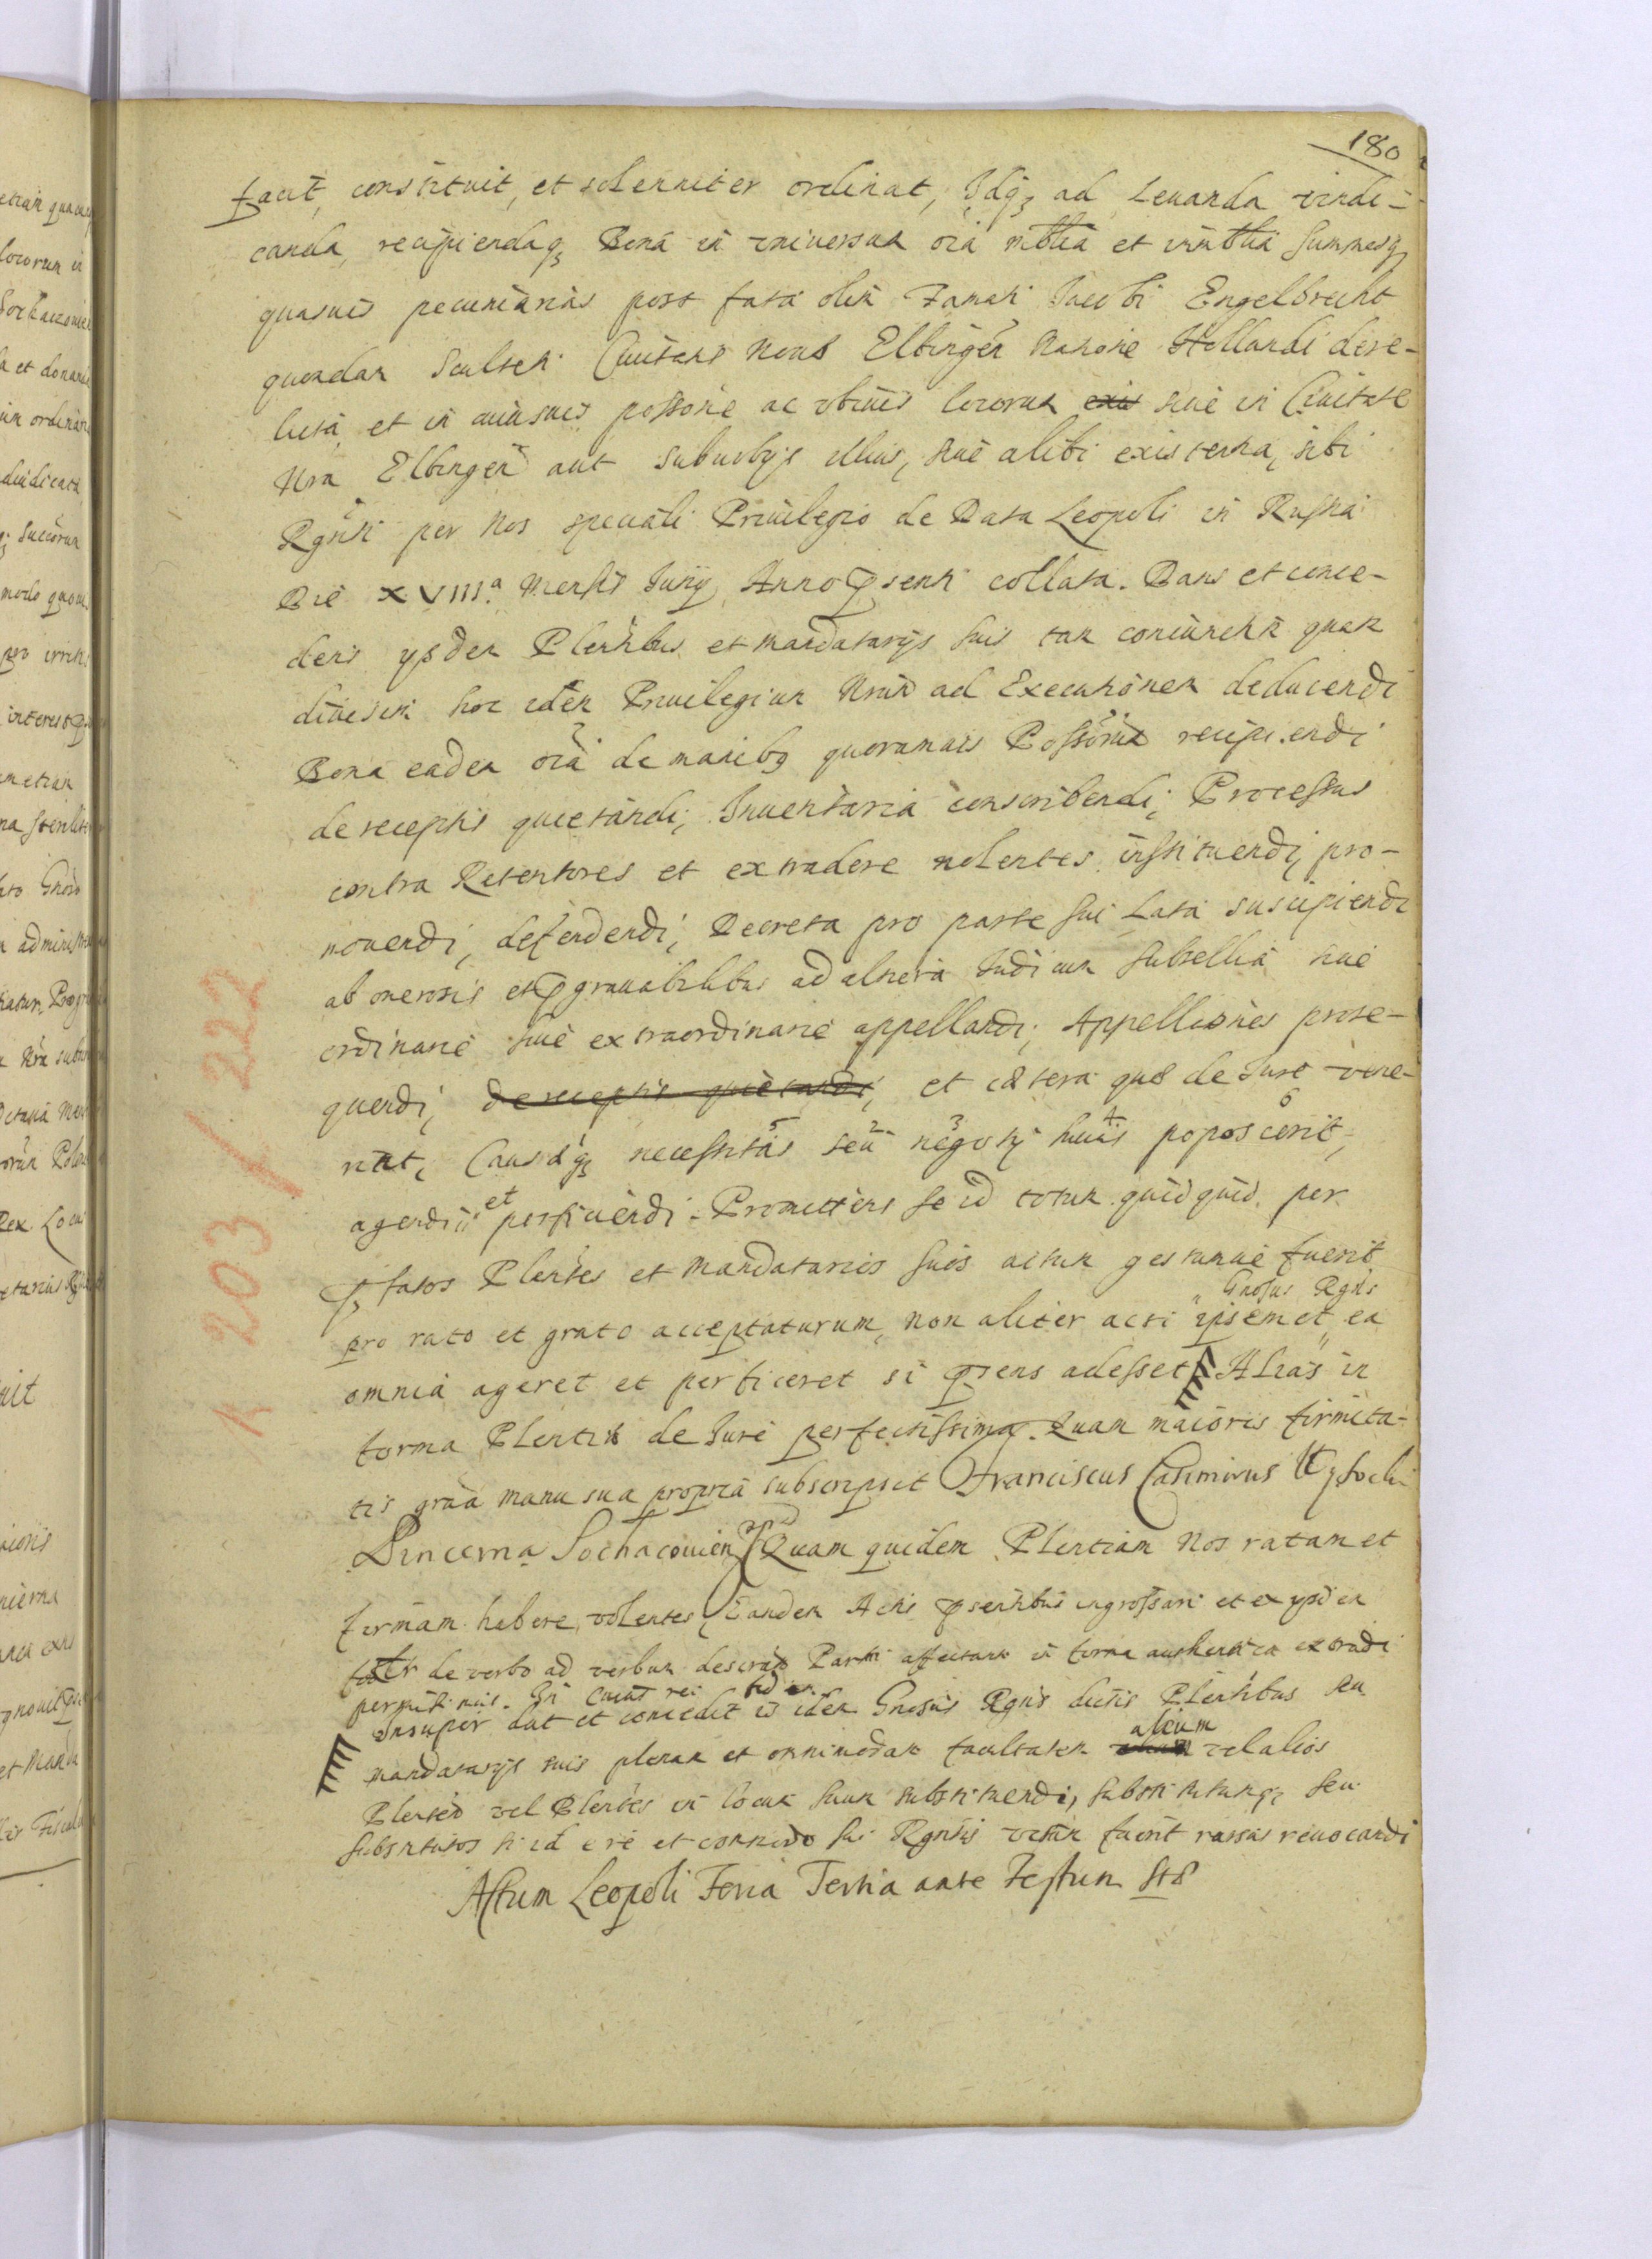 180
facit, constituit, et solenniter ordinat, Idq₃ ad Levanda vindi-
canda, recipiendaq₃ Bona in universum oia mblia et imblia summasq₃
quasvis pecuniarias post fata olim Famati Jacobi Engelbrecht
quondam Sculteti Civitatis Novae Elbingen Natione Hollandi dere-
licta, et in cuiusvis possone ac ubivis locorum exis sive in Civitate
Nra Elbingen aut suburbijs illius, sive alibi existentia, sibi
Rgnti per Nos speciali Privilegio de Data Leopoli in Russia
Die XVIII.a Mensis Junij Anno psenti collata. Dans et conce-
dens ijsdem Plentibus et mandatarijs suis tam coniunctim quam
divisim hoc idem Privilegium Nrum ad Executionem deducendi
Bona eadem oia de manibq quorumvis Possorum recipiendi
de receptis quietandi, Inventaria conscribendi, Processus
contra Retentores et extradere nolentes instituendi, pro-
movendi, defendendi, Decreta pro parte sui Lata suscipiendi
ab onerosis et pgravabilibus ad alteria Iudicum Subsellia sive
ordinarie sive extraordinarie appellandi, Appellationes prose-
quendi, de receptis quietandi, et caetera quae de Iure vene-
rint, Causaeq₃ necessitas 5 seu 2 negotij 3 huius 4 poposcerit 6,
agendi et perficiendi. Promittens se id totum quidquid per
pfatos Plentes et Mandatarios suos actum gestumve fuerit
Gnosus Rgns
pro rato et grato accepturum, non aliter acsi ipsemet ea
omnia ageret et perficeret si psens adesset Alias in
forma Plentiae de Iure perfectissima. Quam maioris firmita-
tis gratia manu sua propria subscripsit Franciscus Casimirus Wysocki
Pincerna Sochacovien mp Quam quidem Plentiam Nos ratam et
firmam habere volentes, Eandem Actis psentibus ingrossari et ex ijsdem
de verbo ad verbum descriptam Parti affectanti in forma authentica extradi
permisimus. In cuius rei fidem
Insuper dat et concedit is idem Gnosus Rgns dictis Plentibus seu
mandatarijs suis plenam et omnimodam facultatem alium vel alios
Plentem vel Plentes in locum suum substituendi, substitutumq₃ seu
substitutos si id e re et commodo sui Rgntis visum fuerit rursus revocandi
Actum Leopoli Feria Tertia ante Festum Stae
1 203 / 222